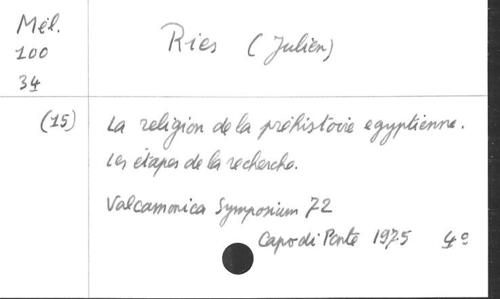 Mél.
100
34
Ries (Julien)
(15) La religion de la préhistoire egyptienne.
Les étapes de la recherche.
Valcamonica Symposium 72
Capo di Ponte 1975 4°